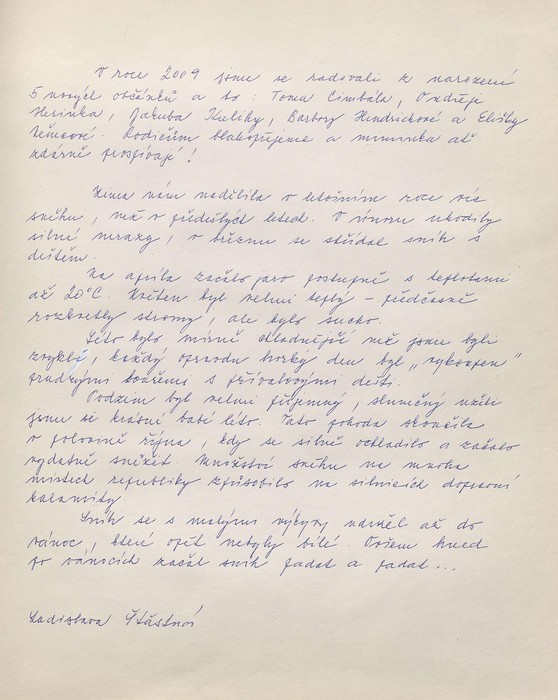 V roce 2009 jsme se radovali z narození
5 nových občánků a to: Toma Cimbála, Ondřeje
Herinka, Jakuba Kuliky, Barbory Hendrichové a Elišky
Němcové. Rodičům blahopřejeme a miminka ať
zdárně prospívají!
Zima nám nadělila v letošním roce víc
sněhu, než v předešlých letech. V únoru uhodily
silné mrazy, v březnu se střídal sníh s
deštěm.
Na apríla začalo jaro postupně s teplotami
až 20°C. Květen byl velmi teplý - předčasně
rozkvetly stromy, ale bylo sucho.
Léto bylo mírně chladnější než jsme byli
zvyklí, každý opravdu horký den byl „vykoupen"
prudkými bouřemi s přívalovými dešti.
Podzim byl velmi příjemný, slunečný užili
jsme si krásné babí léto. Tato pohoda skončila
v polovině října, kdy se silně ochladilo a začalo
vydatně sněžit. Množství sněhu na mnoha
místech republiky způsobilo na silnicích dopravní
kalamity.
Sníh se s malými výkyvy udržel až do
vánoc, které opět nebyly bílé. Ovšem hned
po vánocích začal sníh padat a padat...
Ladislava Šťastná